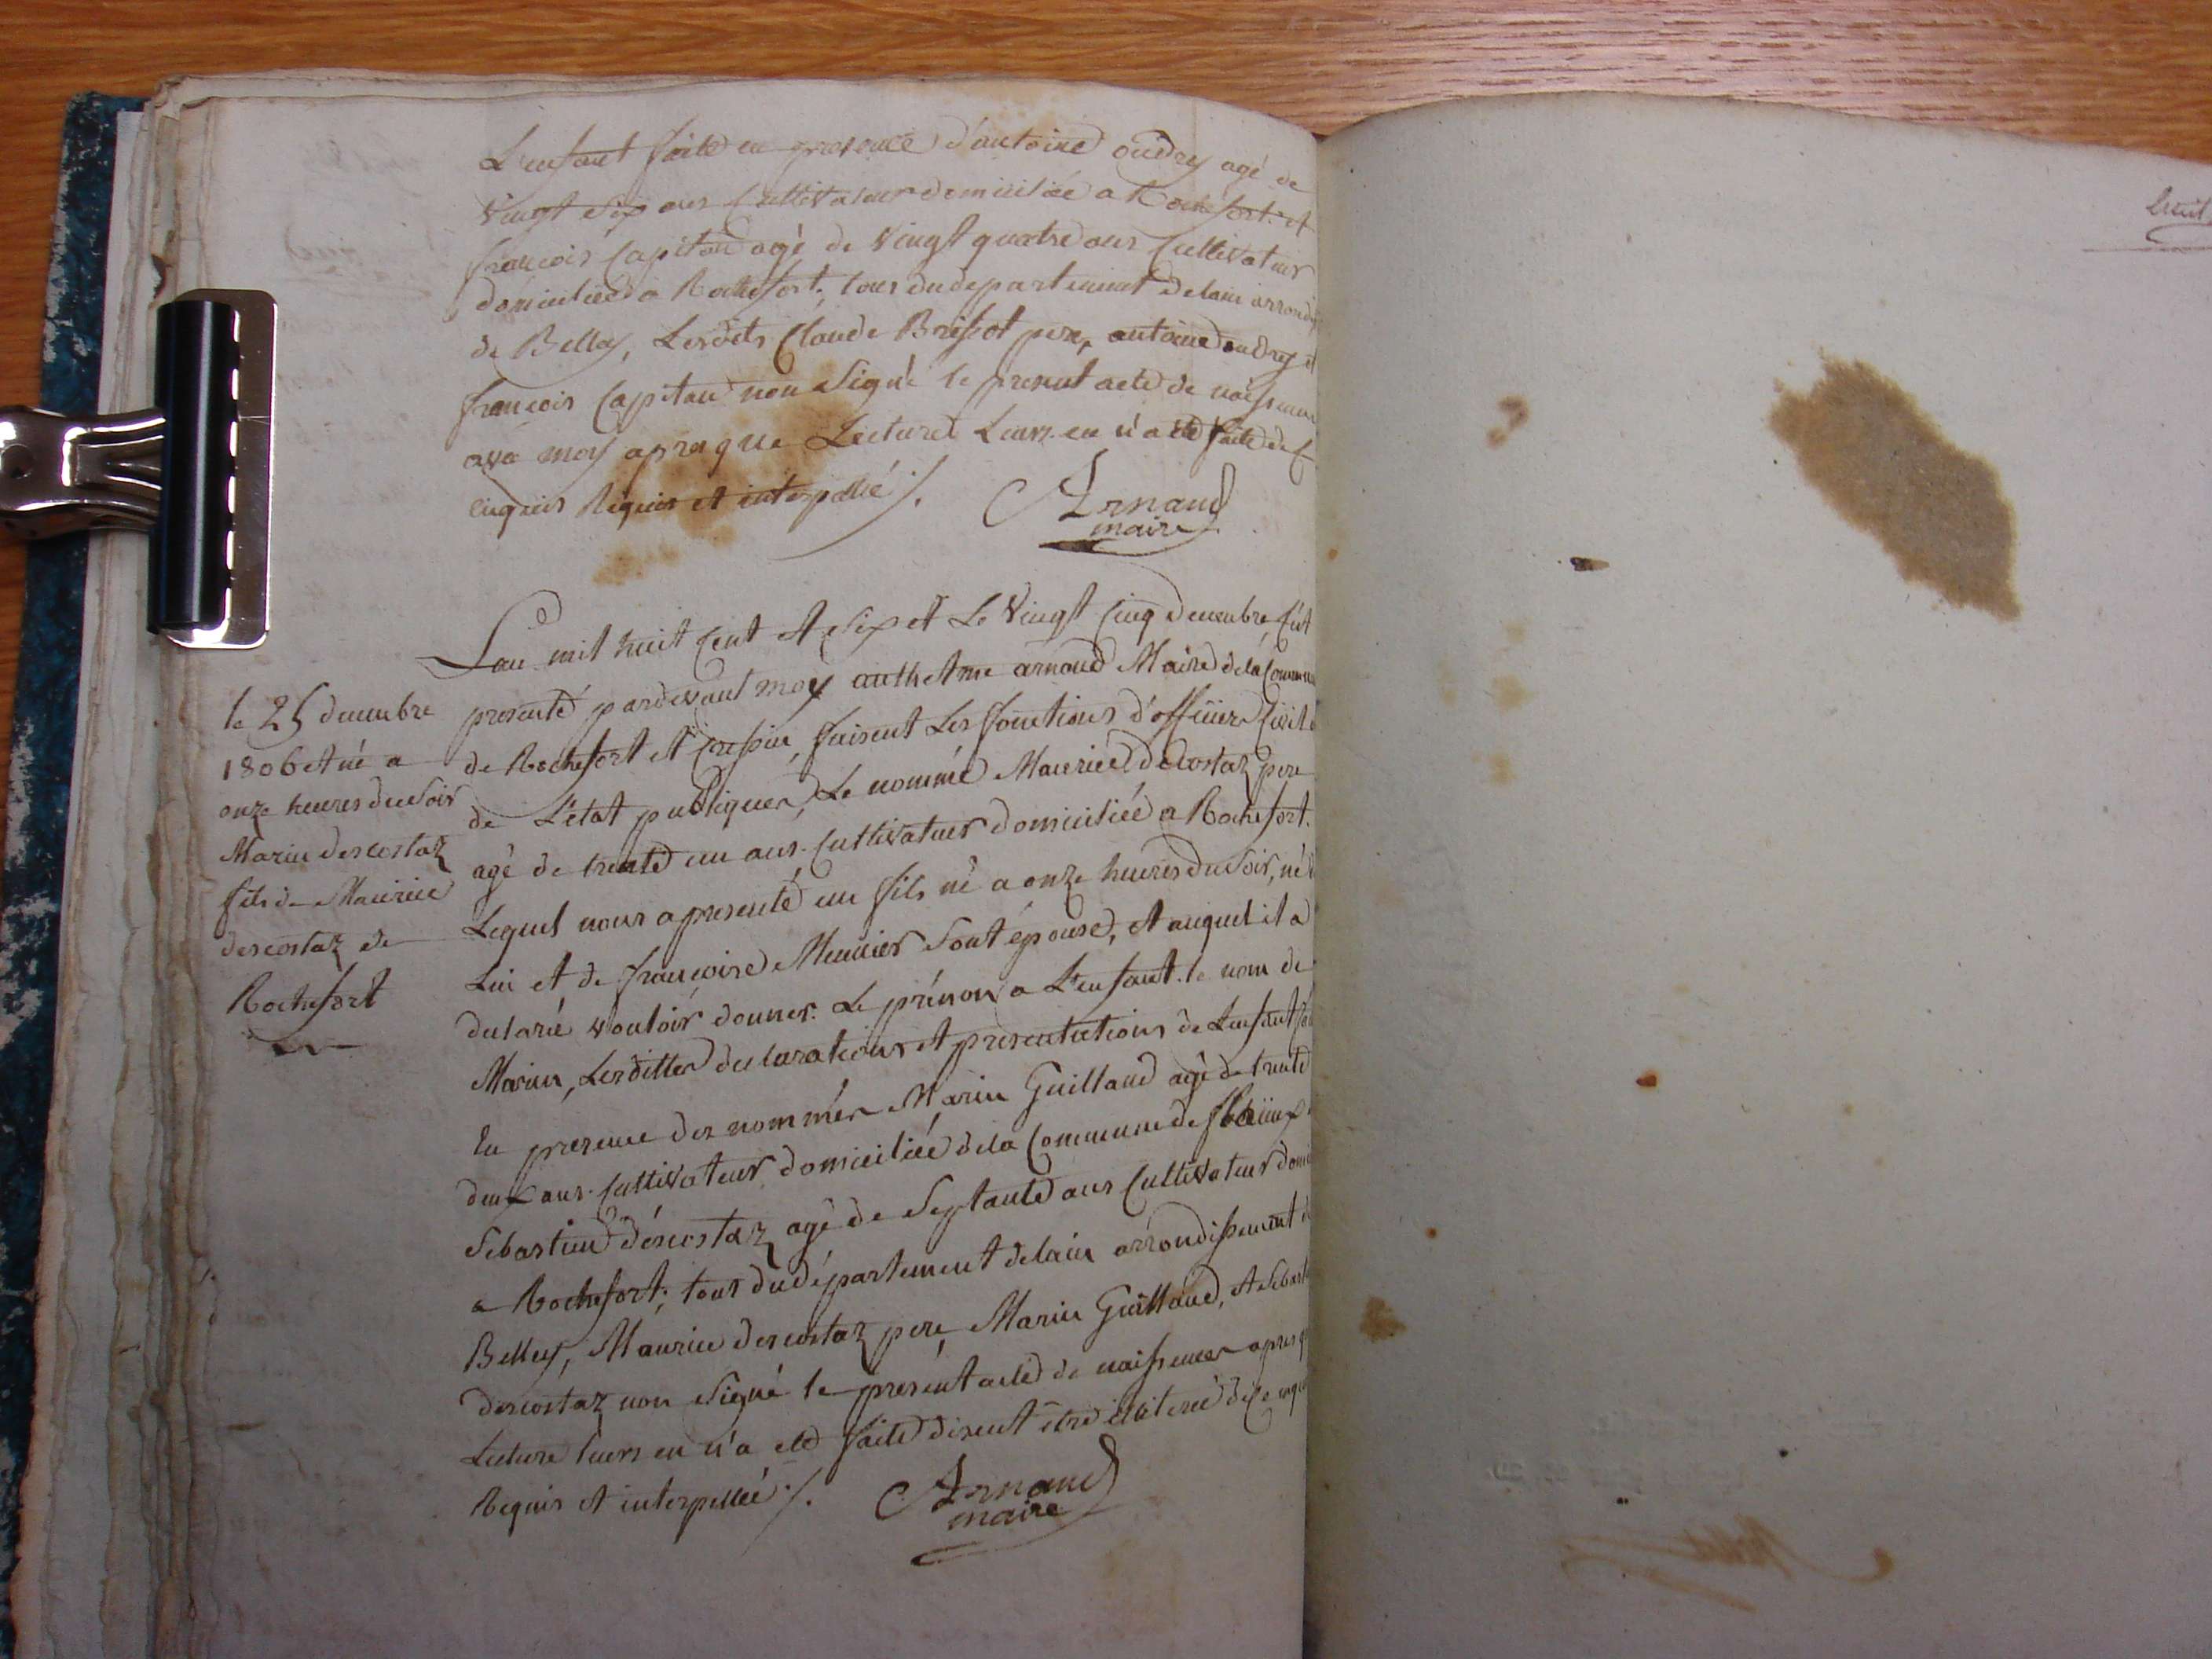 L'enfant faite en presence d'antoine oudry agé de
Vingt Six ans Cultivateur domiciliée a Rochefort. et
françois Capitan agé de Vingt quatre ans Cultivateur
domiciliée a Rochefort, tous du departement delain arrondis
de Belley, Lesdits Claude Brissot pere, antoine oudry et
françois Capitan non Signé le present acte de naissance
avé moy apres que Lecture Leurs en n'a eté faite de
enquis Requis et interpellé /.
Arnaud
maire
Lan mil huit Cent et Six et Le Vingt Cinq decembre, fut
presenté pardevant moy anthelme arnaud Maire dela Commune
de Rochefort et Cressin, faisent Les fonctions d'officier Civil
de L'état publique, Le nommé Maurice descostaz pere
agé de trente un ans. Cultivateur domiciliée a Rochefort.
Lequel nous a presenté un fils né a onze heures du Soir, né
Lui et de françoise Meunier Sont épouse, et auquel il a
declaré vouloir donner. Le prénon a L'enfant. le nom de
Marin, Lesdittes declarations et presentations de Lenfant
En presence des nommés Marin Guilland agé de trente
deux ans. Cultivateur domiciliée dela Commune de
Sebastien déscostaz agé de Septante ans Cultivateur
a Rochefort; tous du département delain arrondissement
Belley, Maurice descostaz pere, Marin Guilland, et
descostaz non Signé le présent acte de naissance apres
Lecture leurs en n'a eté faite disent être
Requis et interpellé /.
Arnaud
maire
le 25 decembre
1806 et né a
onze heures du Soir
Marin descostaz
fils de Maurice
descostaz de
Rochefort